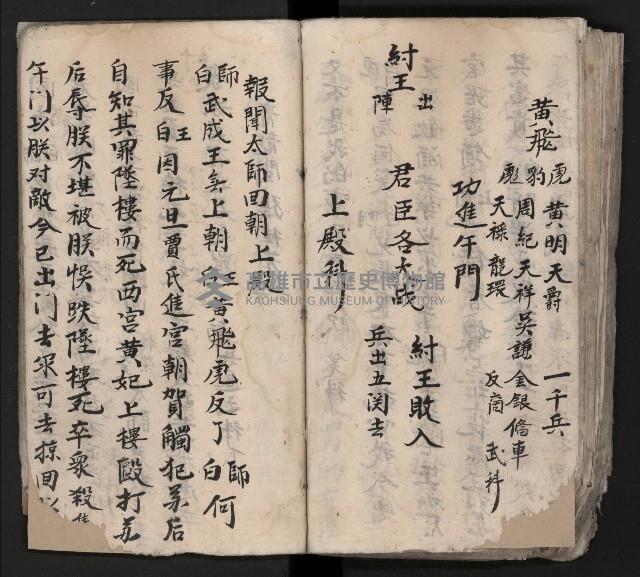 黃飛虎 黃明 天爵 一千兵
豹 周紀 天祥 吳謙 金銀偹車
彪 天祿 龍環 反商 武科
功進午門
紂王出陣 君臣各大战 紂王敗入
上殿科 兵出五関去
報聞太師回朝上殿
師白武成王無上朝 王白黃飛虎反了 師白何
事反 王白因元旦賈氏進宮朝賀觸犯苏后
自知其罪墜樓而死西宮黃妃上樓毆打苏
后辱朕不堪被朕悞跌墜樓死卒衆殺
午门以朕对敵今已出门去 可去掠回
高雄市立歷史博物館
KAOHSIUNG MUSEUM OF HISTORY